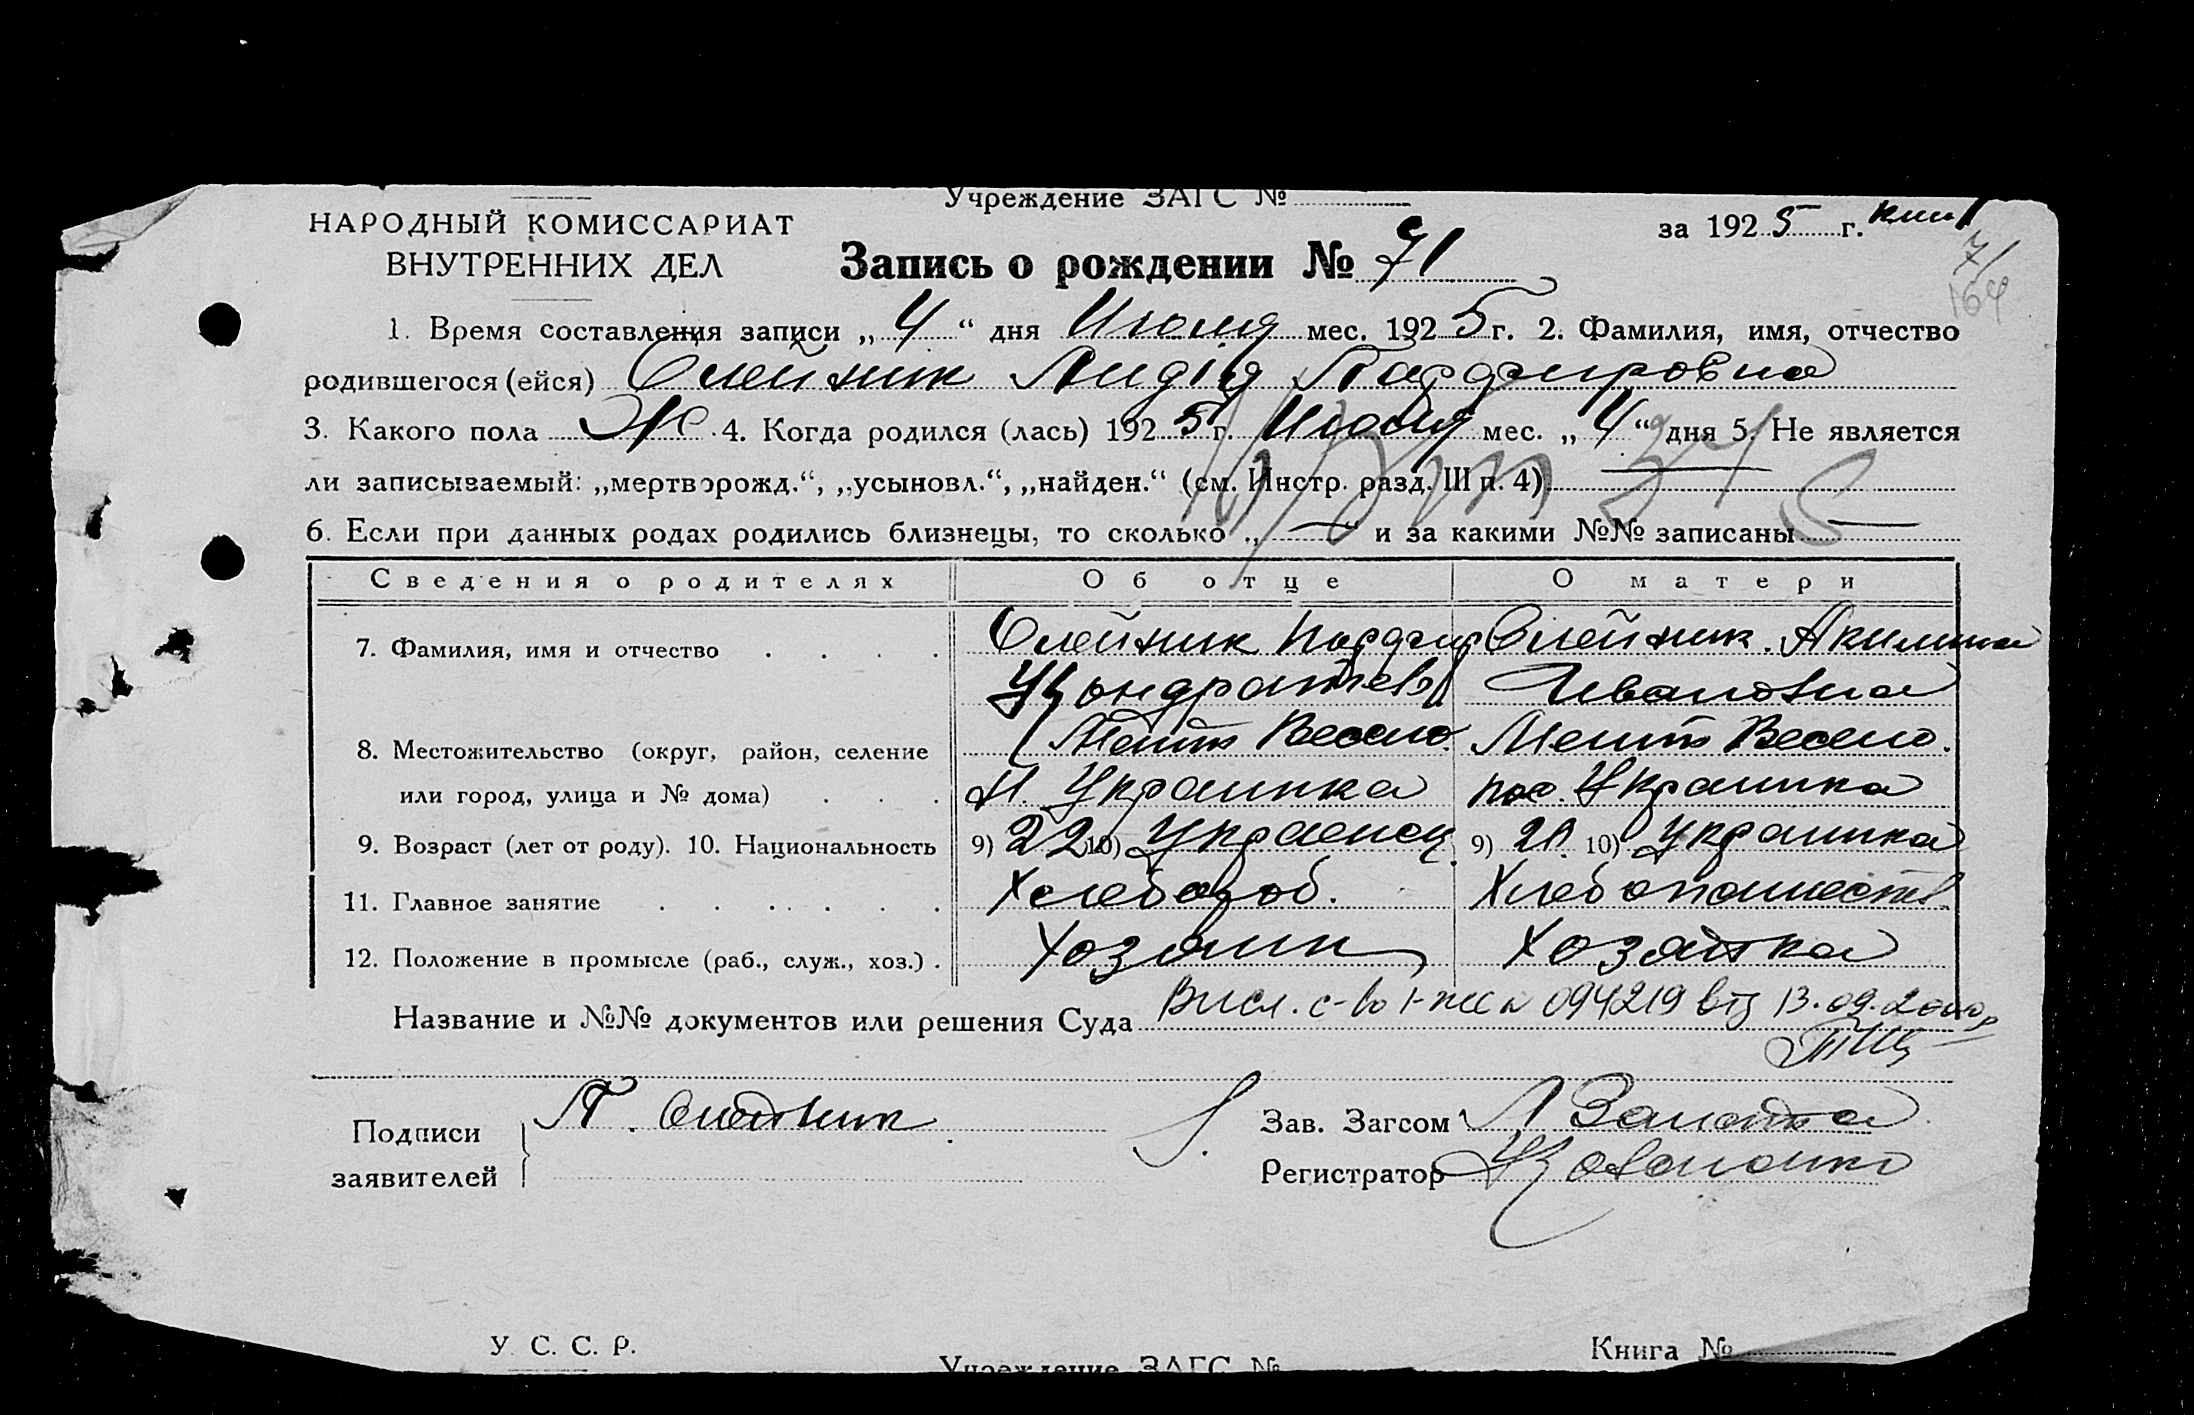 Учреждение ЗАГС №
НАРОДНЫЙ КОМИССАРИАТ
ВНУТРЕННИХ ДЕЛ
за 1925 г.
71
164
Запись о рождении № 71
1. Время составления записи „4“ дня Июля мес. 1925 г. 2. Фамилия, имя, отчество
родившегося (ейся) Олейник Лидія Парфировна
3. Какого пола Ж 4. Когда родился (лась) 1925 г. Июля мес. „4“ дня 5. Не является
ли записываемый: „мертворожд.“, „усыновл.“, „найден.“ (см. Инстр. разд. III п. 4) —
6. Если при данных родах родились близнецы, то сколько „—“ и за какими №№ записаны —
Сведения о родителях Об отце О матери
7. Фамилия, имя и отчество . . . . Олейник Парфир Олейник Акилина
Кондратьев Ивановна
8. Местожительство (округ, район, селение Мелит Весело. Мелит Весело.
или город, улица и № дома) . . . п. Украинка пос. Украинка
9. Возраст (лет от роду). 10. Национальность 9) 22 10) Украенец 9) 21. 10) Украинка
11. Главное занятие . . . . . . Хлебороб. Хлебопашеств.
12. Положение в промысле (раб., служ., хоз.) . Хозяин Хозяйка
Название и №№ документов или решения Суда с-во I-ЖС № 094219 від 13.09.2000р
Подписи
заявителей
П. Олейник
Зав. Загсом
Регистратор
У. С. С. Р.
Учреждение ЗАГС №
Книга №